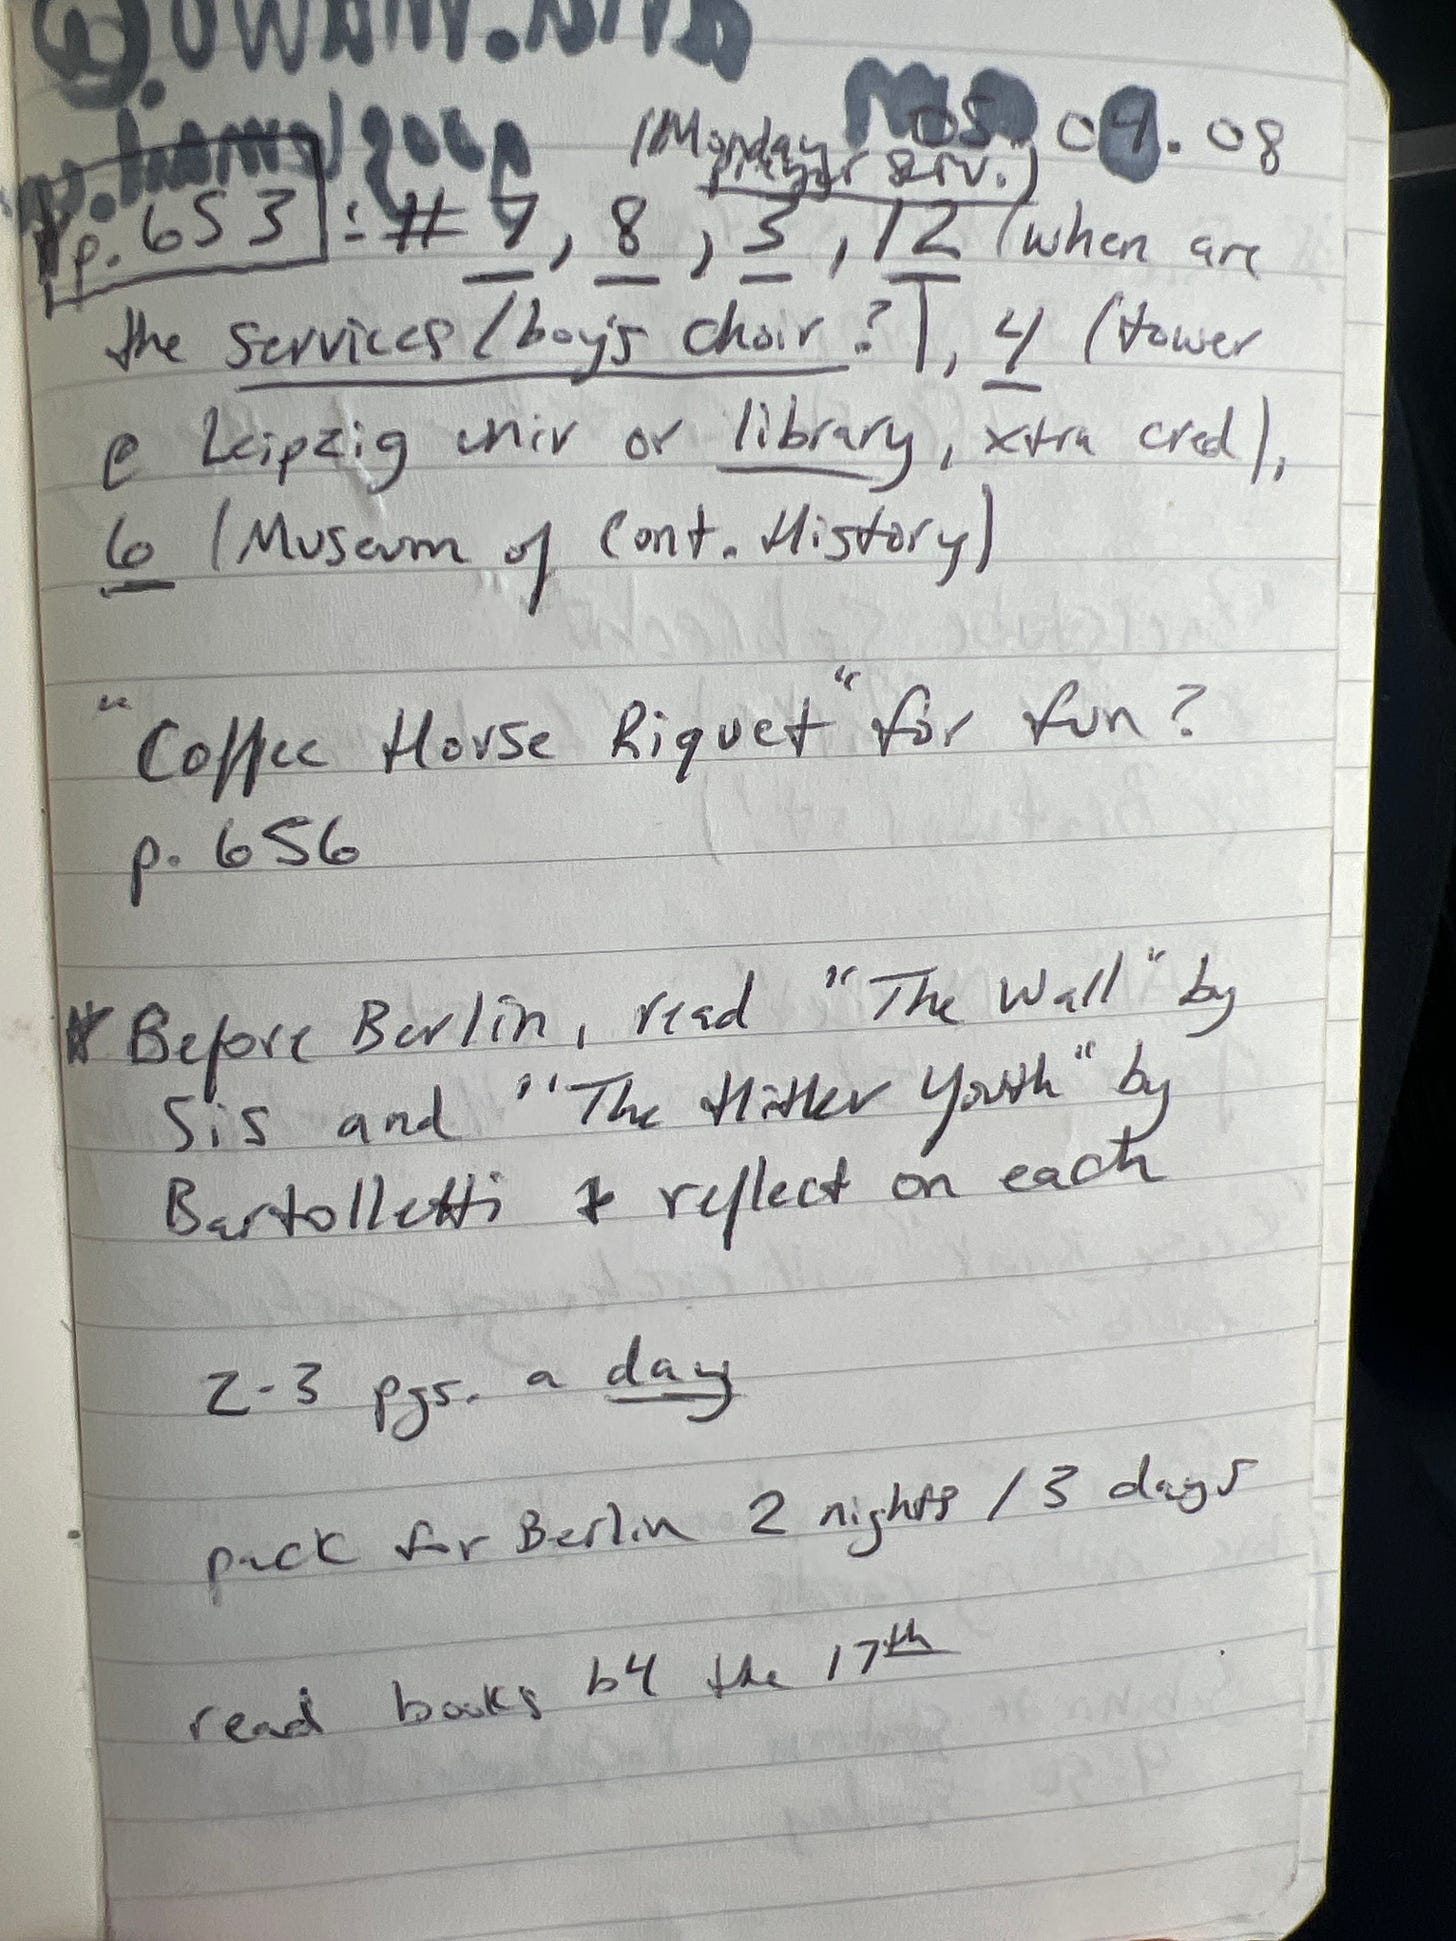 05.09.08
(Monday
prayer serv.)
p. 653 : # 7, 8, 3, 12 (when are
the services/boy's choir?), 4 (tower
@ Leipzig univ or library, xtra cred),
6 (Museum of Cont. History)
"Coffee House Riquet" for fun?
p. 656
* Before Berlin, read "The Wall" by
Sis and "The Hitler Youth" by
Bartolletti & reflect on each
2-3 pgs. a day
pack for Berlin 2 nights / 3 days
read books b4 the 17th